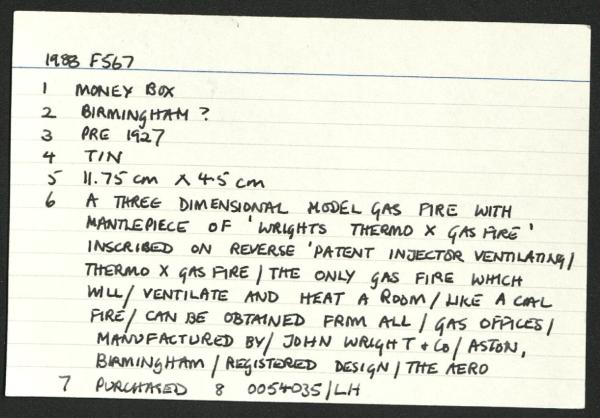 1983 F567
1 MONEY BOX
2 BIRMINGHAM ?
3 PRE 1927
4 TIN
5 11.75 cm X 4.5 cm
6 A THREE DIMENSIONAL MODEL GAS FIRE WITH
MANTLEPIECE OF 'WRIGHTS THERMO X GAS FIRE'
INSCRIBED ON REVERSE 'PATENT INJECTOR VENTILATING/
THERMO X GAS FIRE / THE ONLY GAS FIRE WHICH
WILL / VENTILATE AND HEAT A ROOM / LIKE A COAL
FIRE / CAN BE OBTAINED FROM ALL / GAS OFFICES /
MANUFACTURED BY / JOHN WRIGHT + CO / ASTON,
BIRMINGHAM / REGISTERED DESIGN / THE AERO
7 PURCHASED 8 0054035/LH